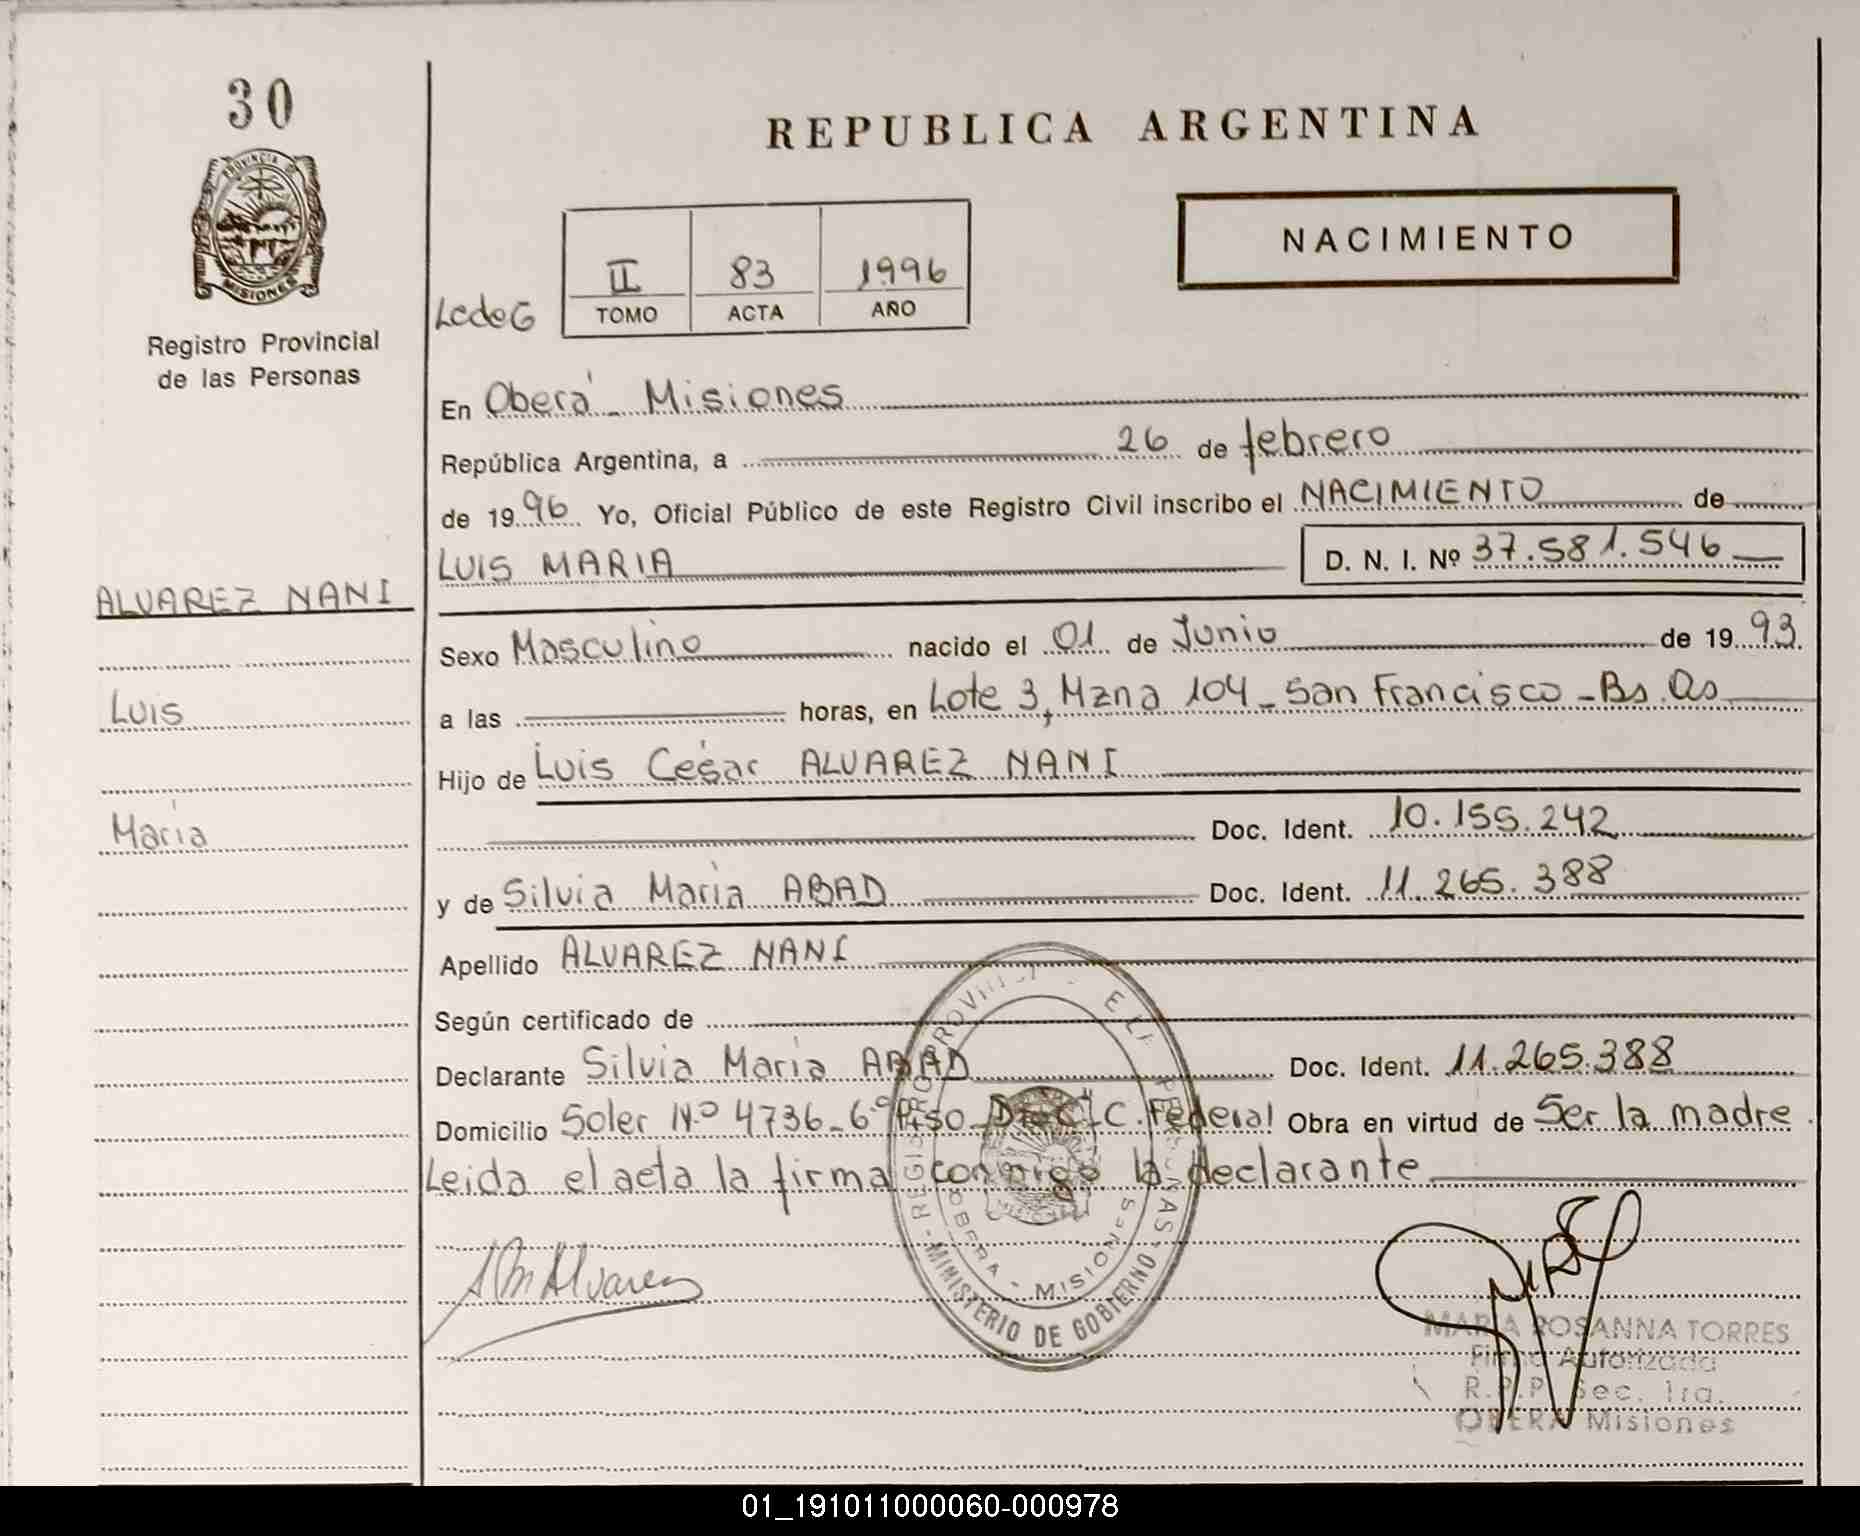 30
PROVINCIA D
MISIONES
Registro Provincial
de las Personas
REPUBLICA ARGENTINA
NACIMIENTO
LedeG
II 83 1.996
TOMO ACTA AÑO
En Oberá - Misiones
República Argentina, a 26 de febrero
de 1996 Yo, Oficial Público de este Registro Civil inscribo el NACIMIENTO de
LUIS MARIA D. N. I. Nº 37.581.546
ALVAREZ NANI
Luis
María
Sexo Masculino nacido el 01 de Junio de 1993.
a las horas, en Lote 3, Mzna 104 - San Francisco - Bs. As
Hijo de Luis César ALVAREZ NANI
Doc. Ident. 10.155.242
y de Silvia María ABAD Doc. Ident. 11.265.388
Apellido ALVAREZ NANI
Según certificado de
Declarante Silvia María ABAD Doc. Ident. 11.265.388
Domicilio Soler N.º 4736 - 6.º Piso - D C. Federal Obra en virtud de Ser la madre.
Leida el acta la firma conmigo la declarante
Alvarez
MINISTERIO DE GOBIERNO
OBERA - MISIONES
MARIA ROSANNA TORRES
Firma Autorizada
R.P.P. Sec. 1ra.
OBERA Misiones
01_191011000060-000978